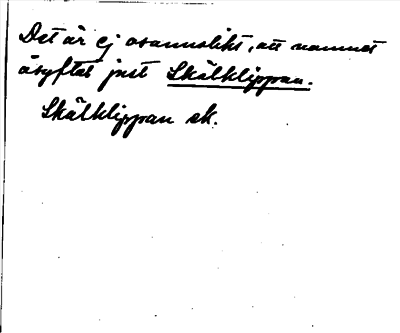 Det är ej osannolikt, att namnet
åsyftat just Skälklippan.
Skälklippan sk.